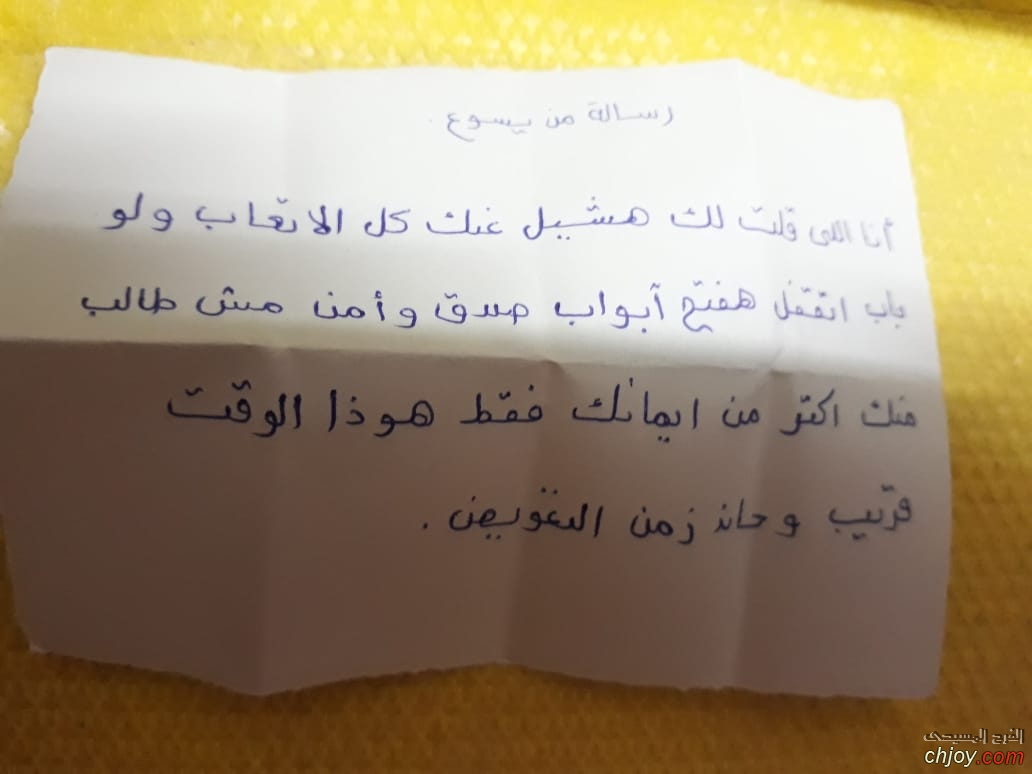 رسالة من يسوع.
أنا اللى قلت لك هشيل عنك كل الاتعاب ولو
باب اتقفل هفتح أبواب صدق وأمن مش طالب
منك اكتر من ايمانك فقط هوذا الوقت
قريب وحان زمن التعويض.
الفرح المسيحى
chjoy.com